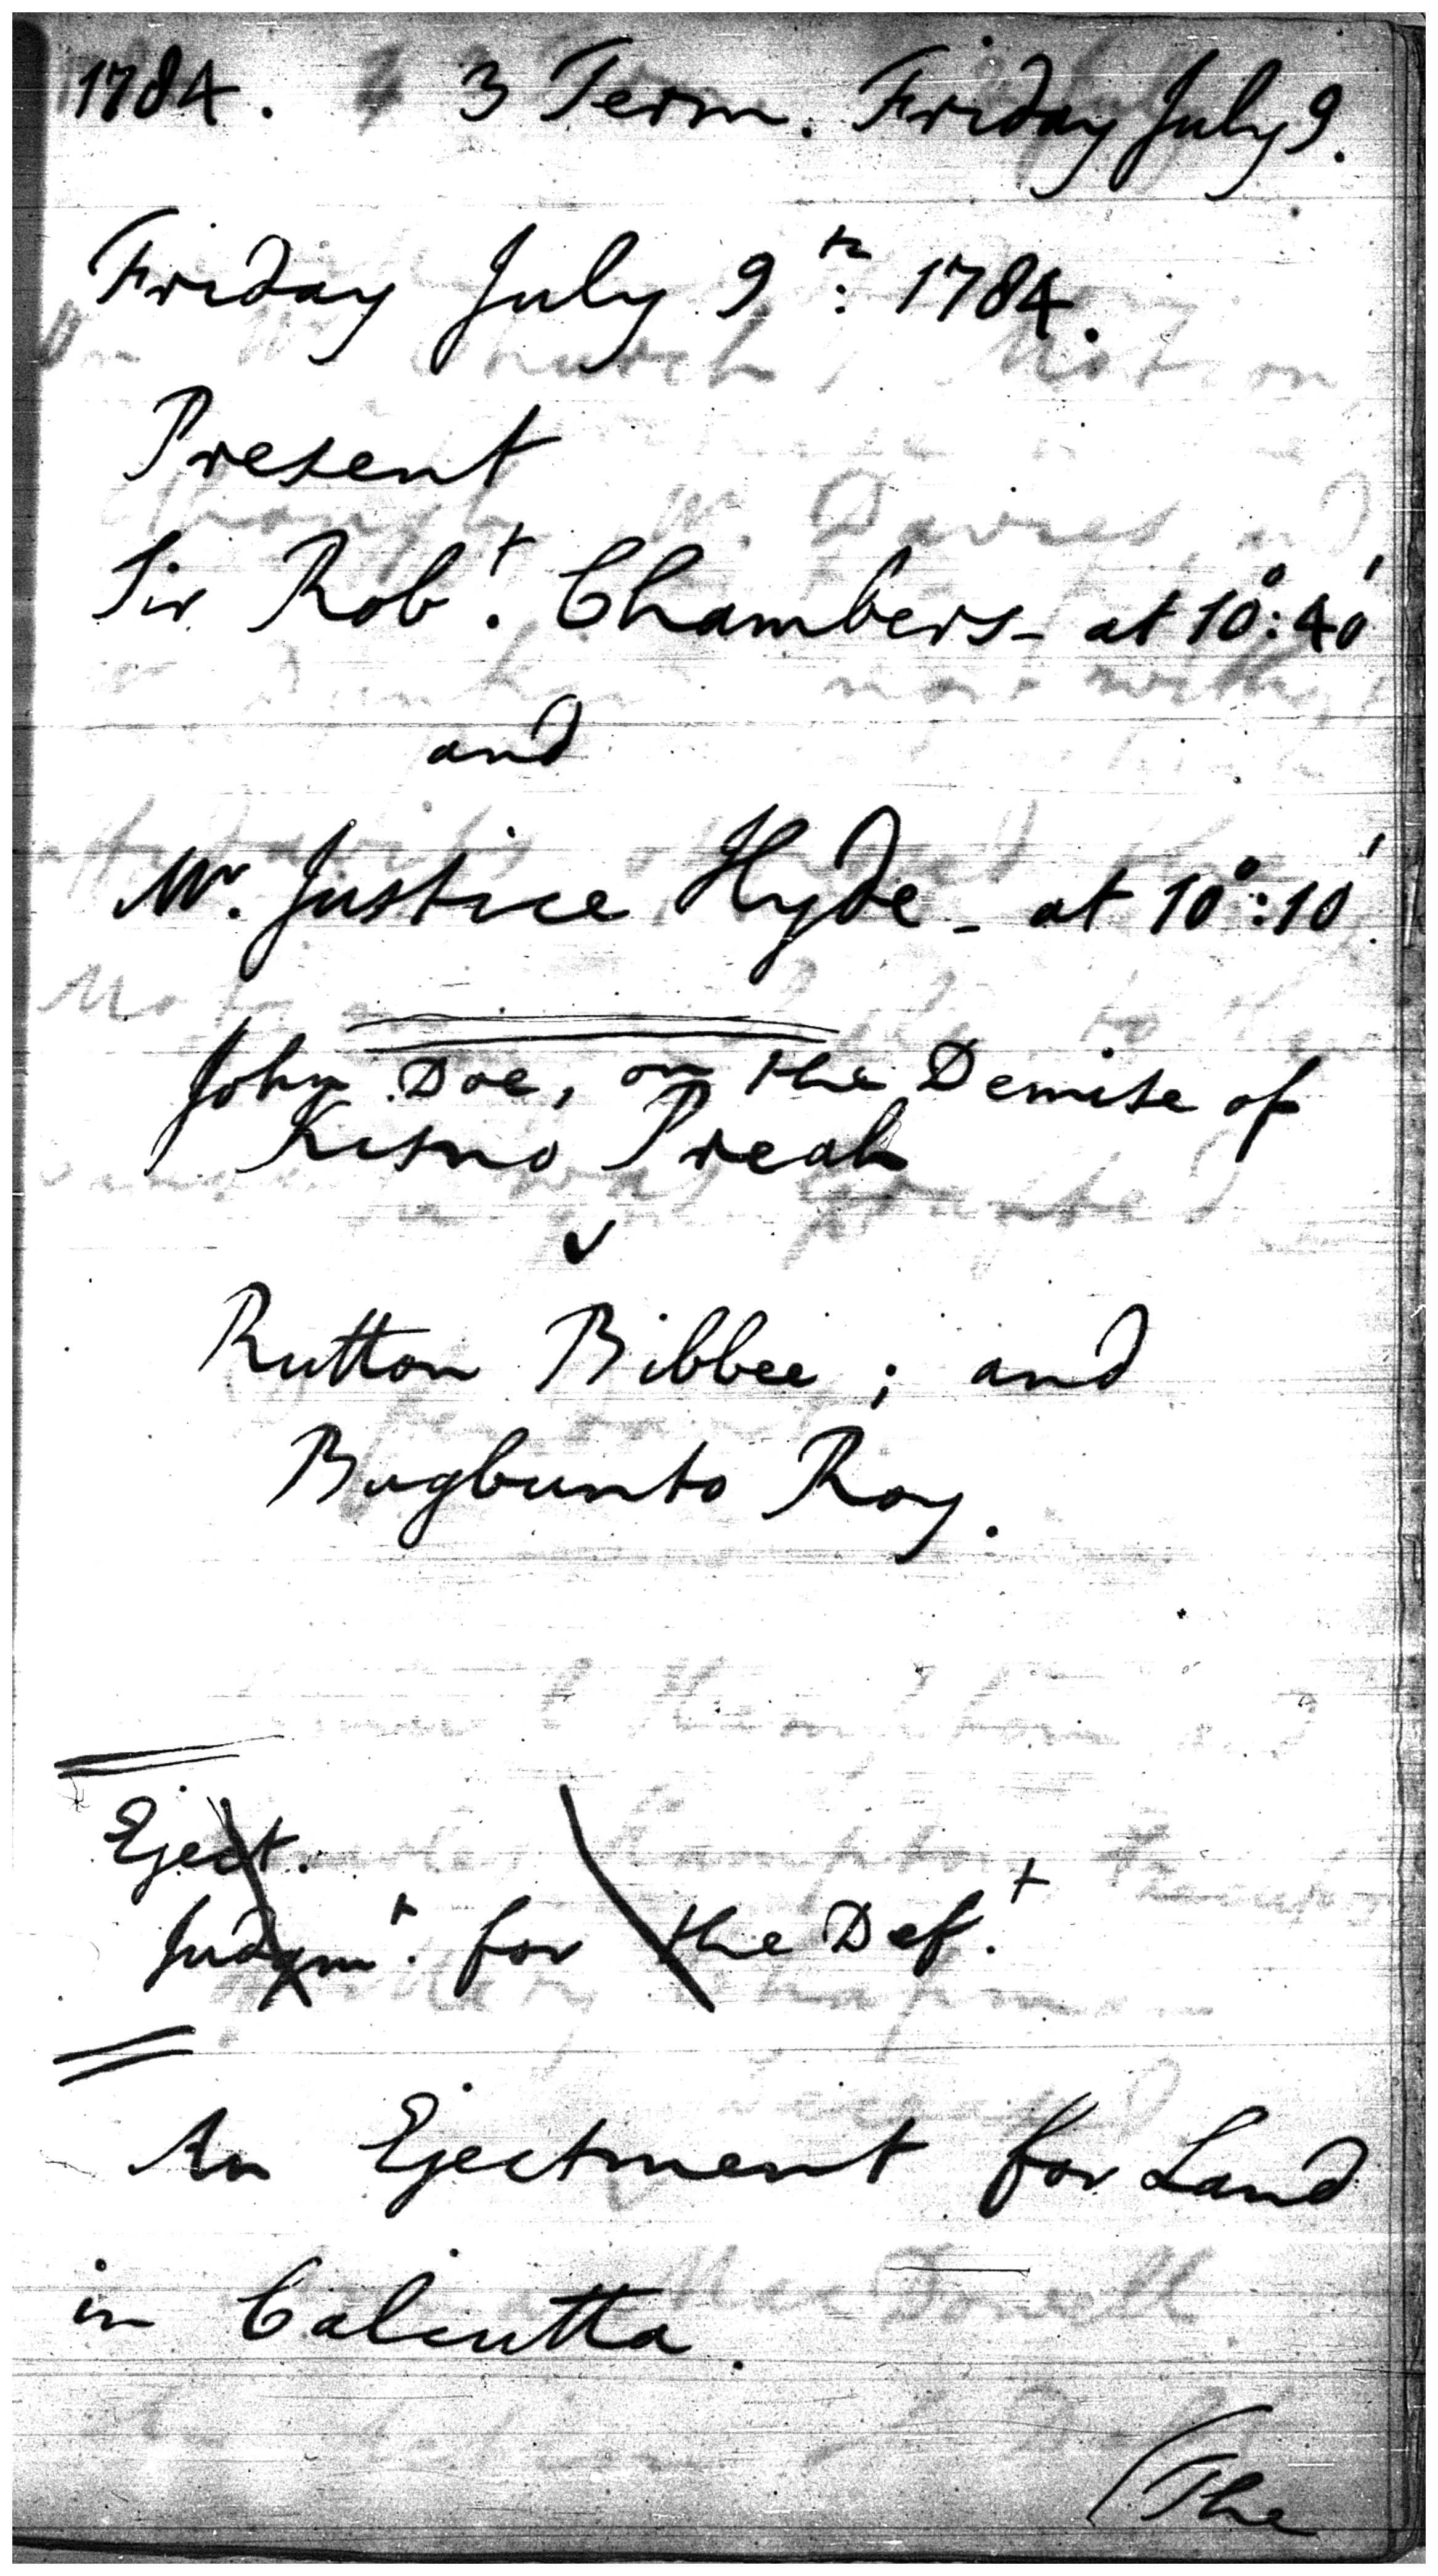 1784. 3 Term. Friday July 9.
Friday July 9th: 1784.
Present
Sir Robt. Chambers - at 10°:40'
and
Mr. Justice Hyde - at 10°:10'
John Doe, on the Demise of
Kisno Preah
v
Rutton Bibbee ; and
Bugbunto Roy.
Eject.
Judgmt. for the Deft.
An Ejectment for Land
in Calcutta.
(The